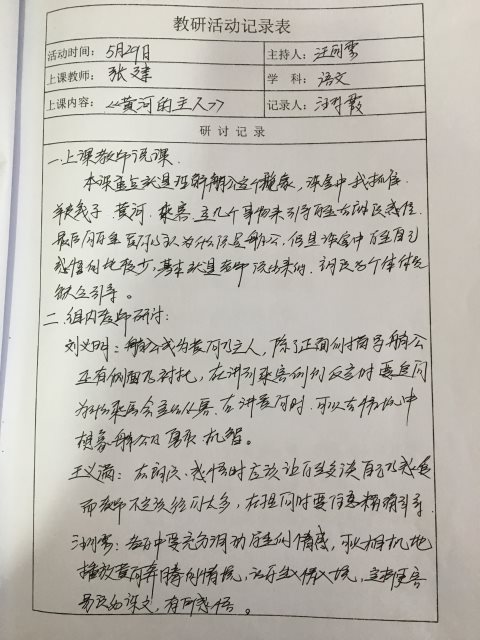 教研活动记录表
活动时间： 5月29日 主持人：汪同云
上课教师： 张建 学 科：语文
上课内容：《黄河的主人》 记录人：
研 讨 记 录
一、上课教师说课
本课重点就是理解艄公这个形象，课堂中我抓住
羊皮筏子、黄河、乘客、这几个事物来引导学生去朗读感悟。
最后问学生黄河的主人为什么说是艄公，但是课堂中学生自己
感悟的比较少，基本就是老师说出来的，朗读与个体体会
缺乏引导。
二、组内老师研讨：
刘义明：艄公成为黄河的主人，除了正面的描写艄公
还有侧面的衬托，在讲到乘客的反应时要追问
为什么乘客会这么从容。在讲黄河时，可以去情境中
想象艄公的勇敢机智。
王义满：在朗读、感悟时应该让学生多谈自己的感受
而老师不应该给的太多，在提问时要注意精确引导
老师中要充分调动学生的情感，可以相机地
播放黄河奔腾的情境，让学生入情入境，这样更容
易理解课文，有所感悟。